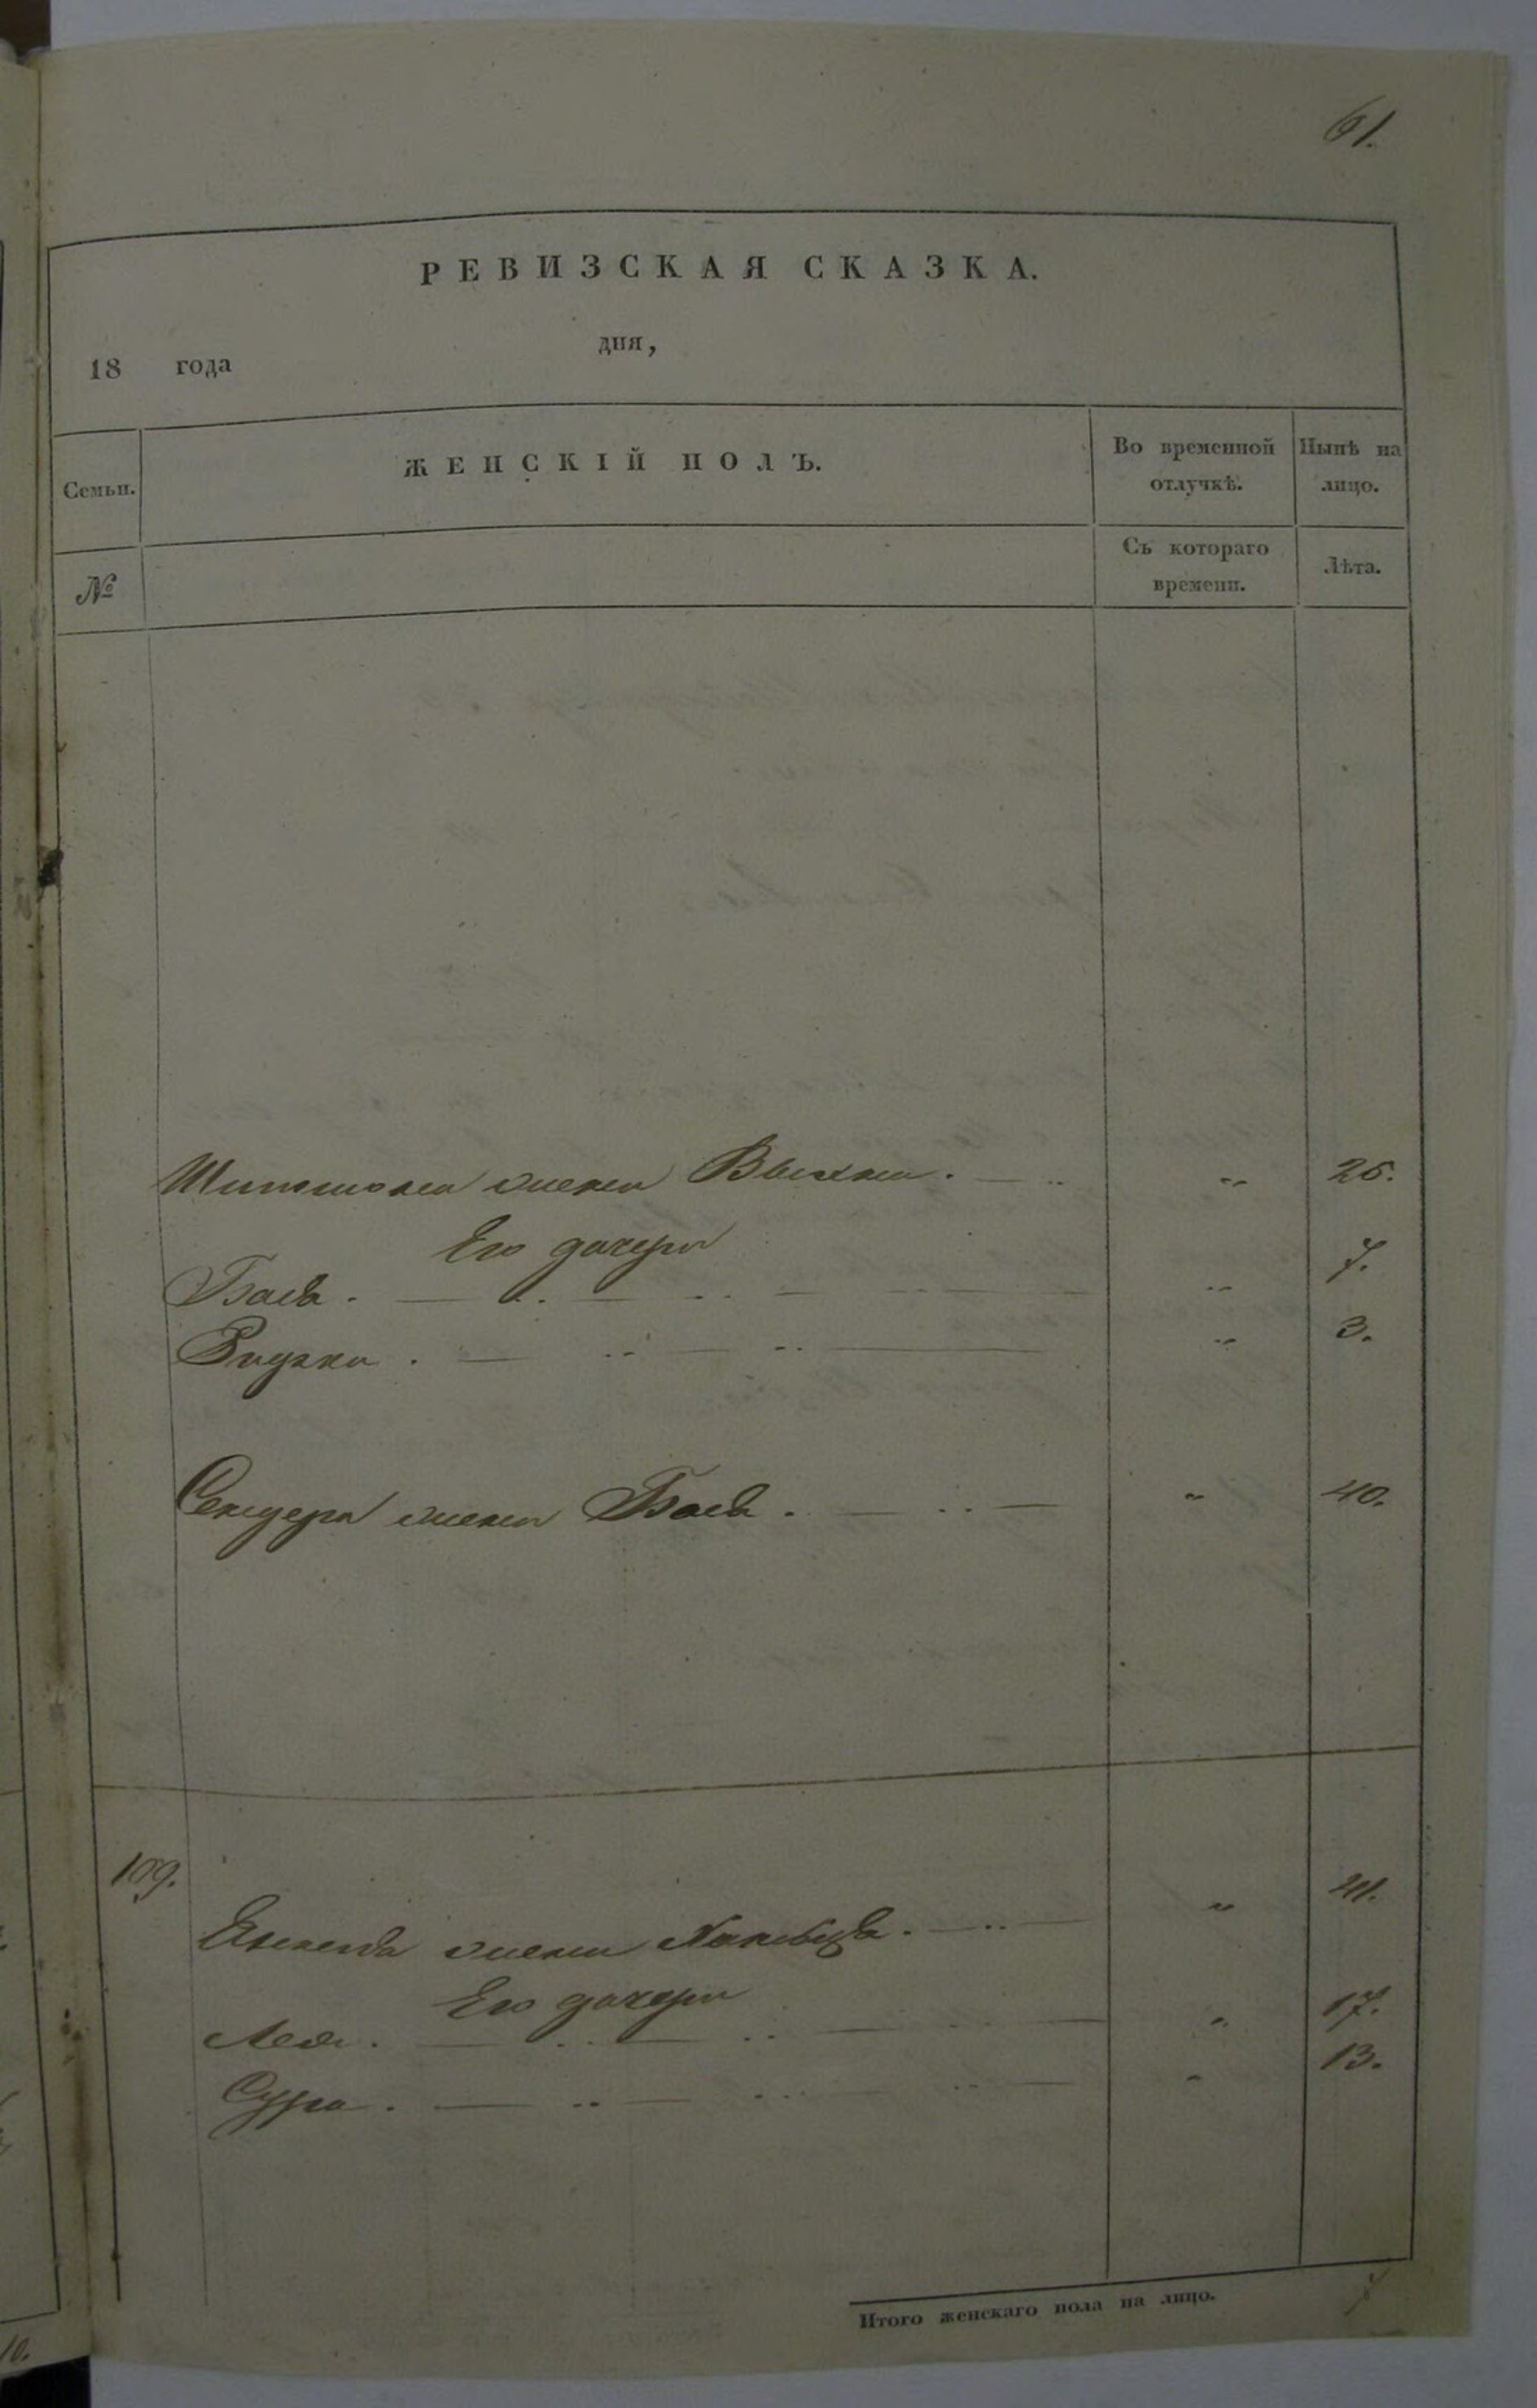 61.
РЕВИЗСКАЯ СКАЗКА.
18 года дня,
Семьи. ЖЕНСКІЙ ПОЛЪ. Во временной отлучкѣ. Нынѣ на лицо.
№ Съ котораго времени. Лѣта.
жена 25.
Его дочери
Бася. 7.
3.
Сендера жена Бася. 40.
109.
жена 41.
Его дочери
Лея. 17.
Сура. 13.
Итого женскаго пола на лицо.
10.